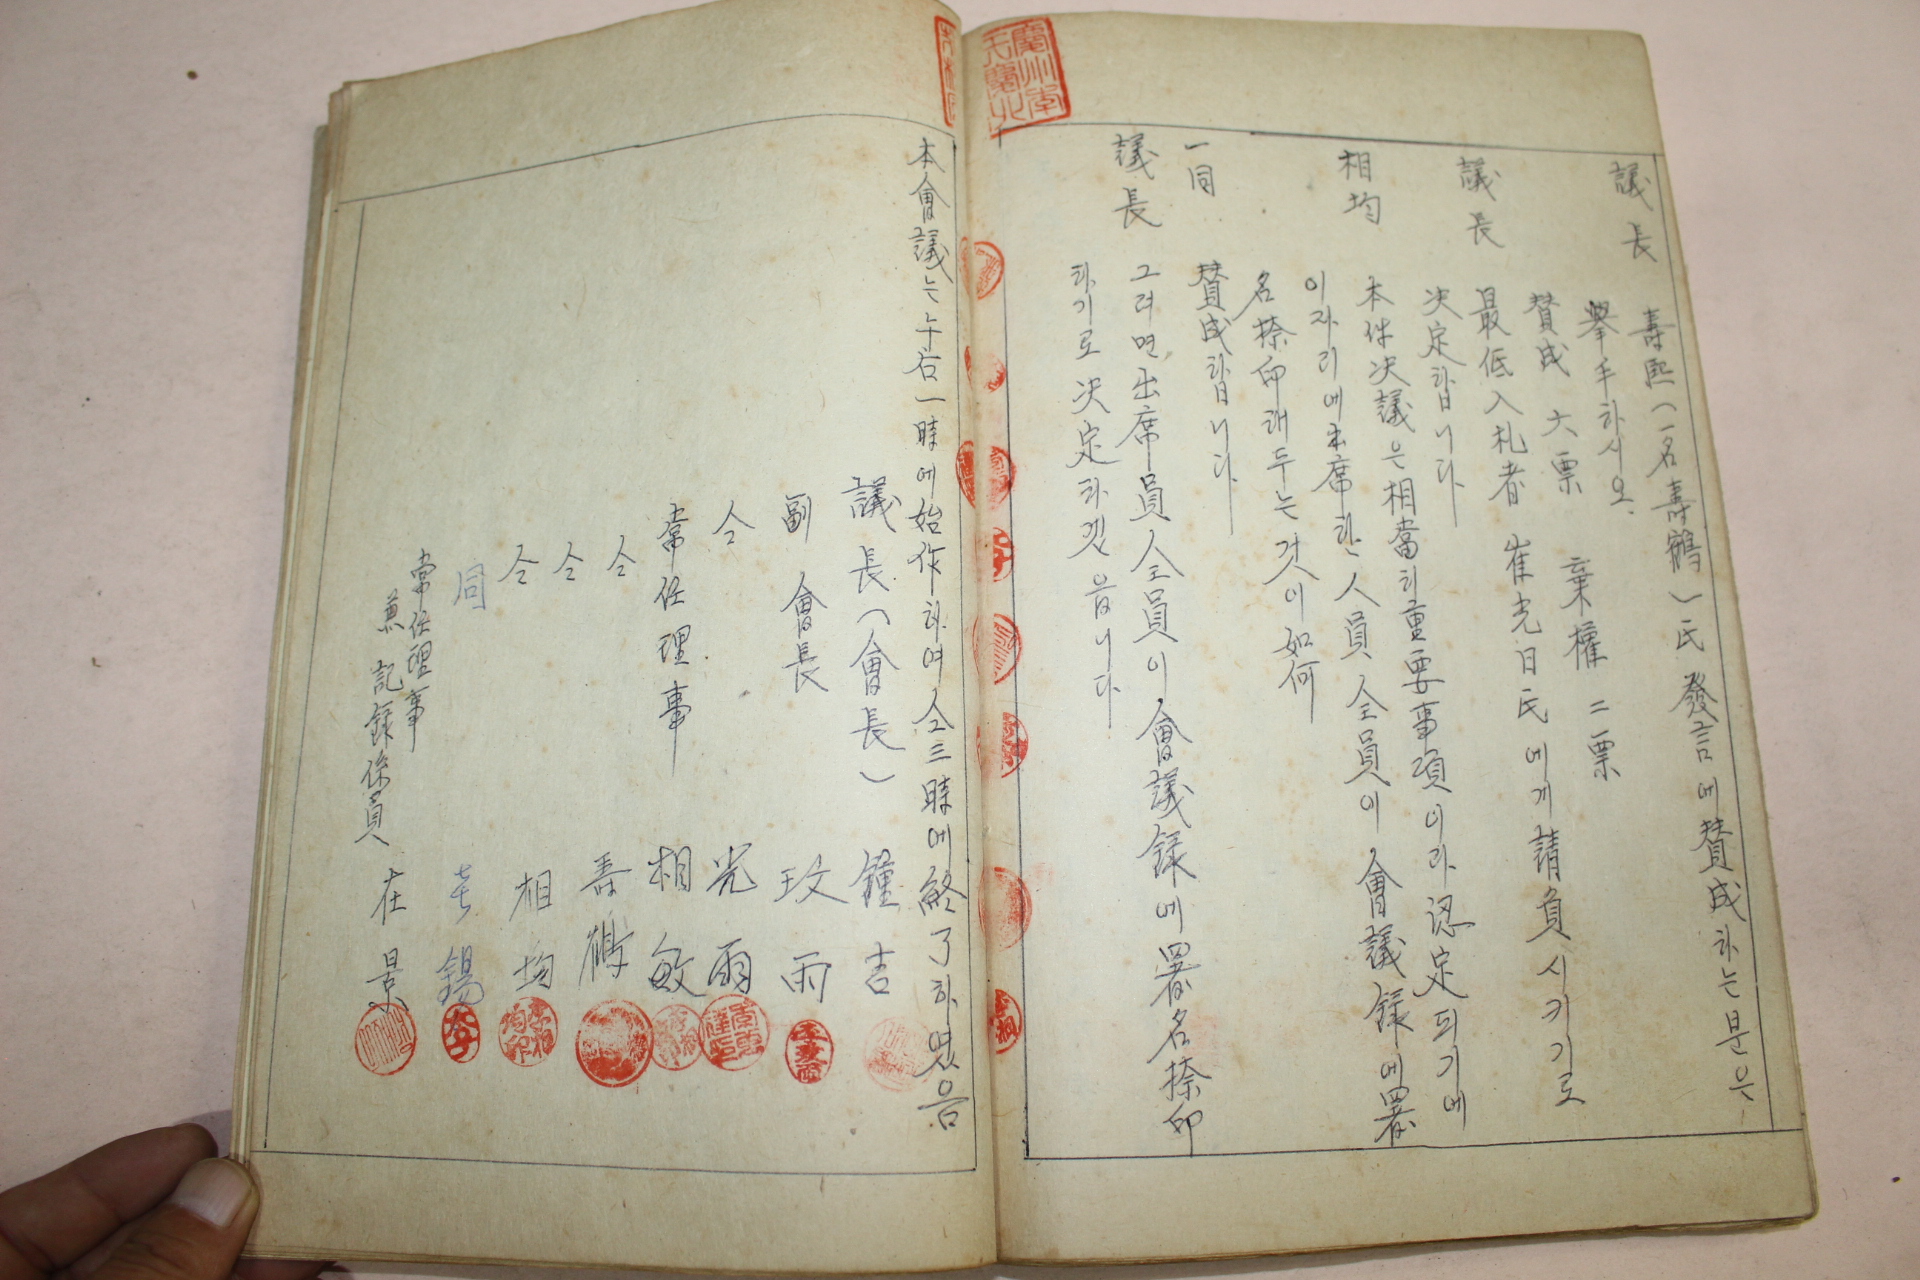 議長 壽熙(一名壽鶴)氏 發言에 賛成하는 분은
擧手하시오.
賛成 六票 棄權 二票
議長 最低入札者 崔光日氏에게 請負시키기로
決定합니다
相均 本件決議은 相當히 重要事項이라 認定되기에
이자리에 出席한 人員 全員이, 會議錄에 署
名捺印해두는 것이 如何
一同 賛成합니다
議長 그러면, 出席員 全員이, 會議錄에 署名捺印
하기로 決定하겠읍니다
本會議는 午后一時에 始作하여 仝三時에 終了하였음
議長(會長) 鐘吉
副會長 玟雨
仝 光雨
常任理事 相敏
仝 壽鶴
仝 相均
仝
同 錫
常任理事
兼 記錄係員 在景